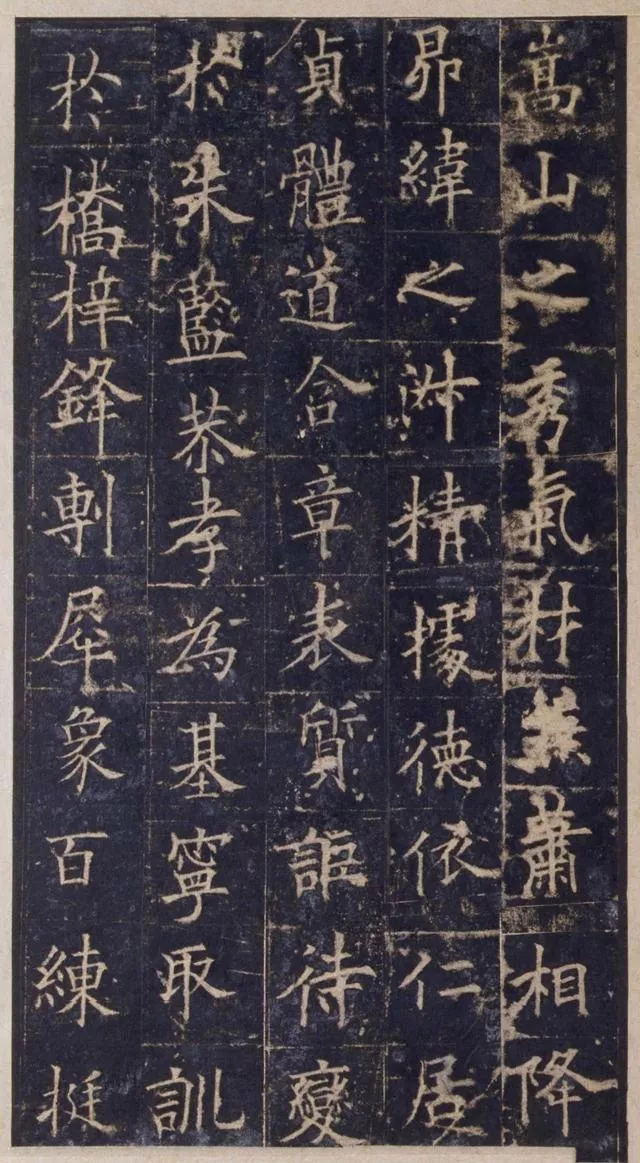 嵩山之秀氣材蕭相降
昴緯之淋精據德依仁居
貞體道含章表質詎待變
於朱藍恭孝為基寧取訓
於橋梓鋒剸犀象百練挺